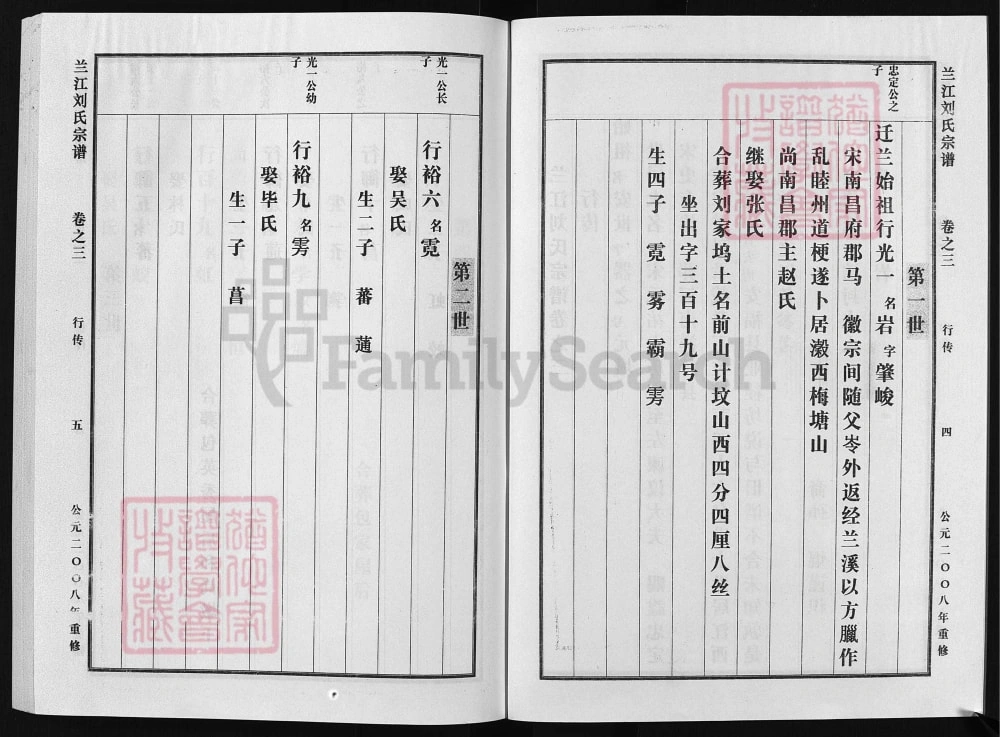 兰江刘氏宗谱 卷之三 行传 四 公元二〇〇八年重修
第一世
忠定公之子
迁兰始祖行光 名岩字肇峻
宋南昌府郡马 徽宗间随父岑外返经兰溪以方臘作
乱睦州道梗遂卜居瀫西梅塘山
尚南昌郡主赵氏
继娶张氏
合葬刘家坞土名前山计坟山西四分四厘八丝
坐出字三百十九号
生四子 霓 雾 霸 雱
第二世
光一公长子
行裕六 名霓
娶吴氏
生二子 蕃 蓮
光一公幼子
行裕九 名雱
娶毕氏
生二子 菖
兰江刘氏宗谱 卷之三 行传 五 公元二〇〇八年重修
FamilySearch